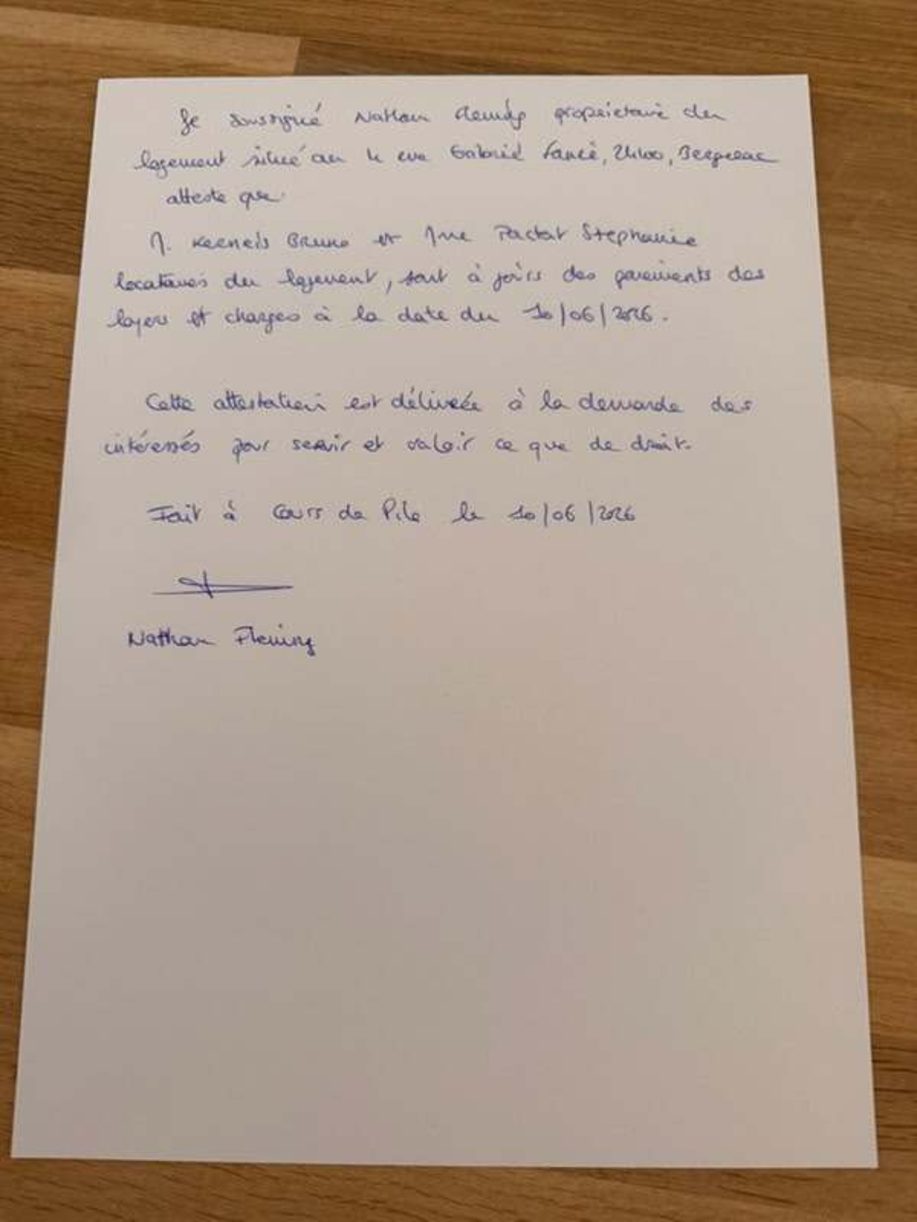 Je soussigné Nathan Fleming propriétaire du
logement situé au 4 rue Gabriel Fauré, 24100, Bergerac
atteste que
M. Kerneis Bruno et Mme Pactat Stephanie
locataires du logement, sont à jours des paiements des
loyers et charges à la date du 10/06/2026.
Cette attestation est délivrée à la demande des
intéressés pour servir et valoir ce que de droit.
Fait à Cours de Pile le 10/06/2026
Nathan Fleming